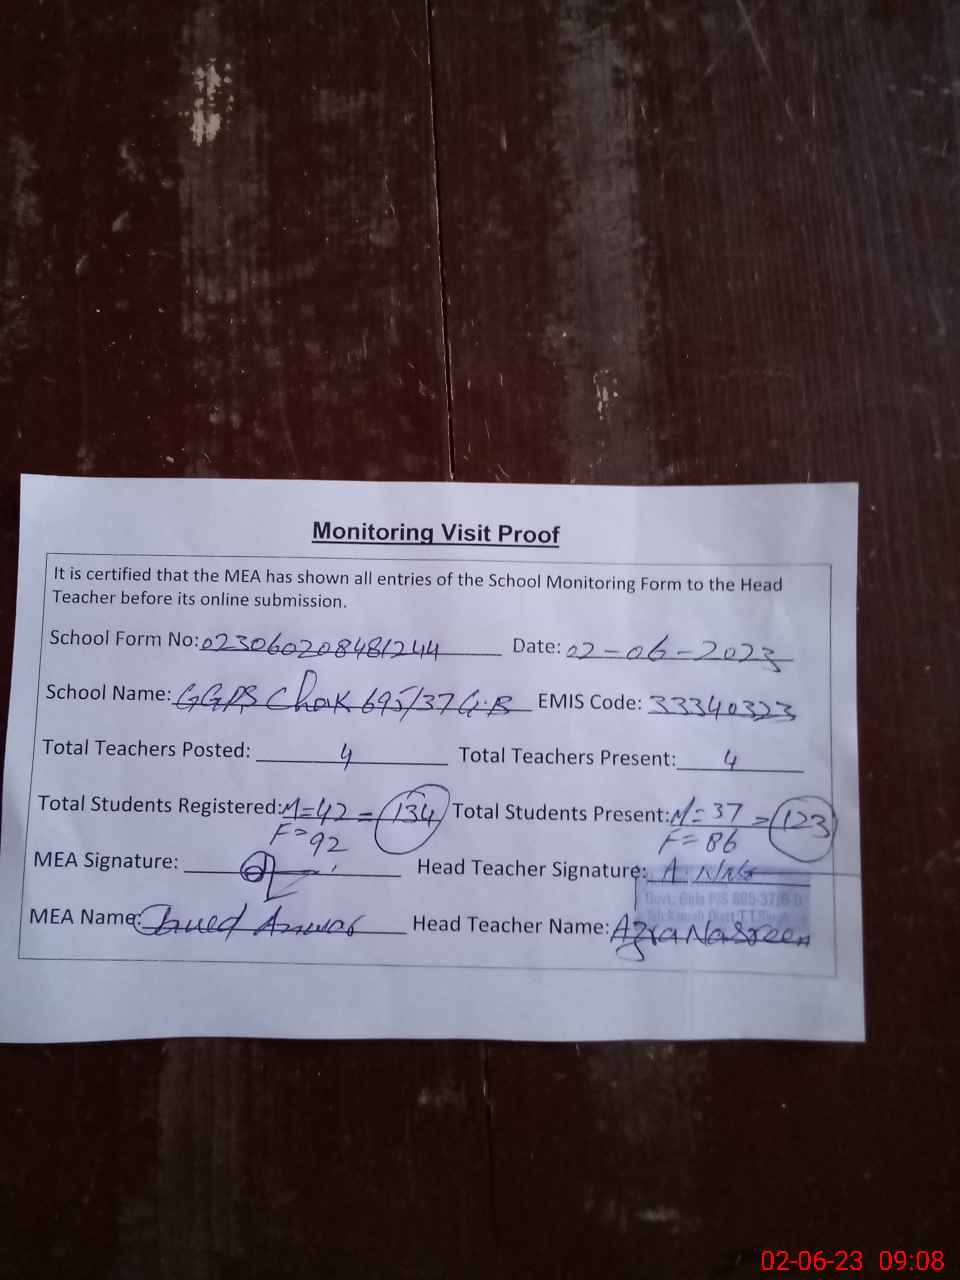 Monitoring Visit Proof
It is certified that the MEA has shown all entries of the School Monitoring Form to the Head
Teacher before its online submission.
School Form No: 023060208481244 Date: 02-06-2023
School Name: GGPS Chak 695/37 G.B EMIS Code: 33340323
Total Teachers Posted: 4 Total Teachers Present: 4
Total Students Registered: M=42 = 134 Total Students Present: M=37 = 123
F=92 F=86
MEA Signature: Head Teacher Signature: A.
Govt. Girls P/S 695-37/G-B
MEA Name: Head Teacher Name: Azra Nasreen
02-06-23 09:08